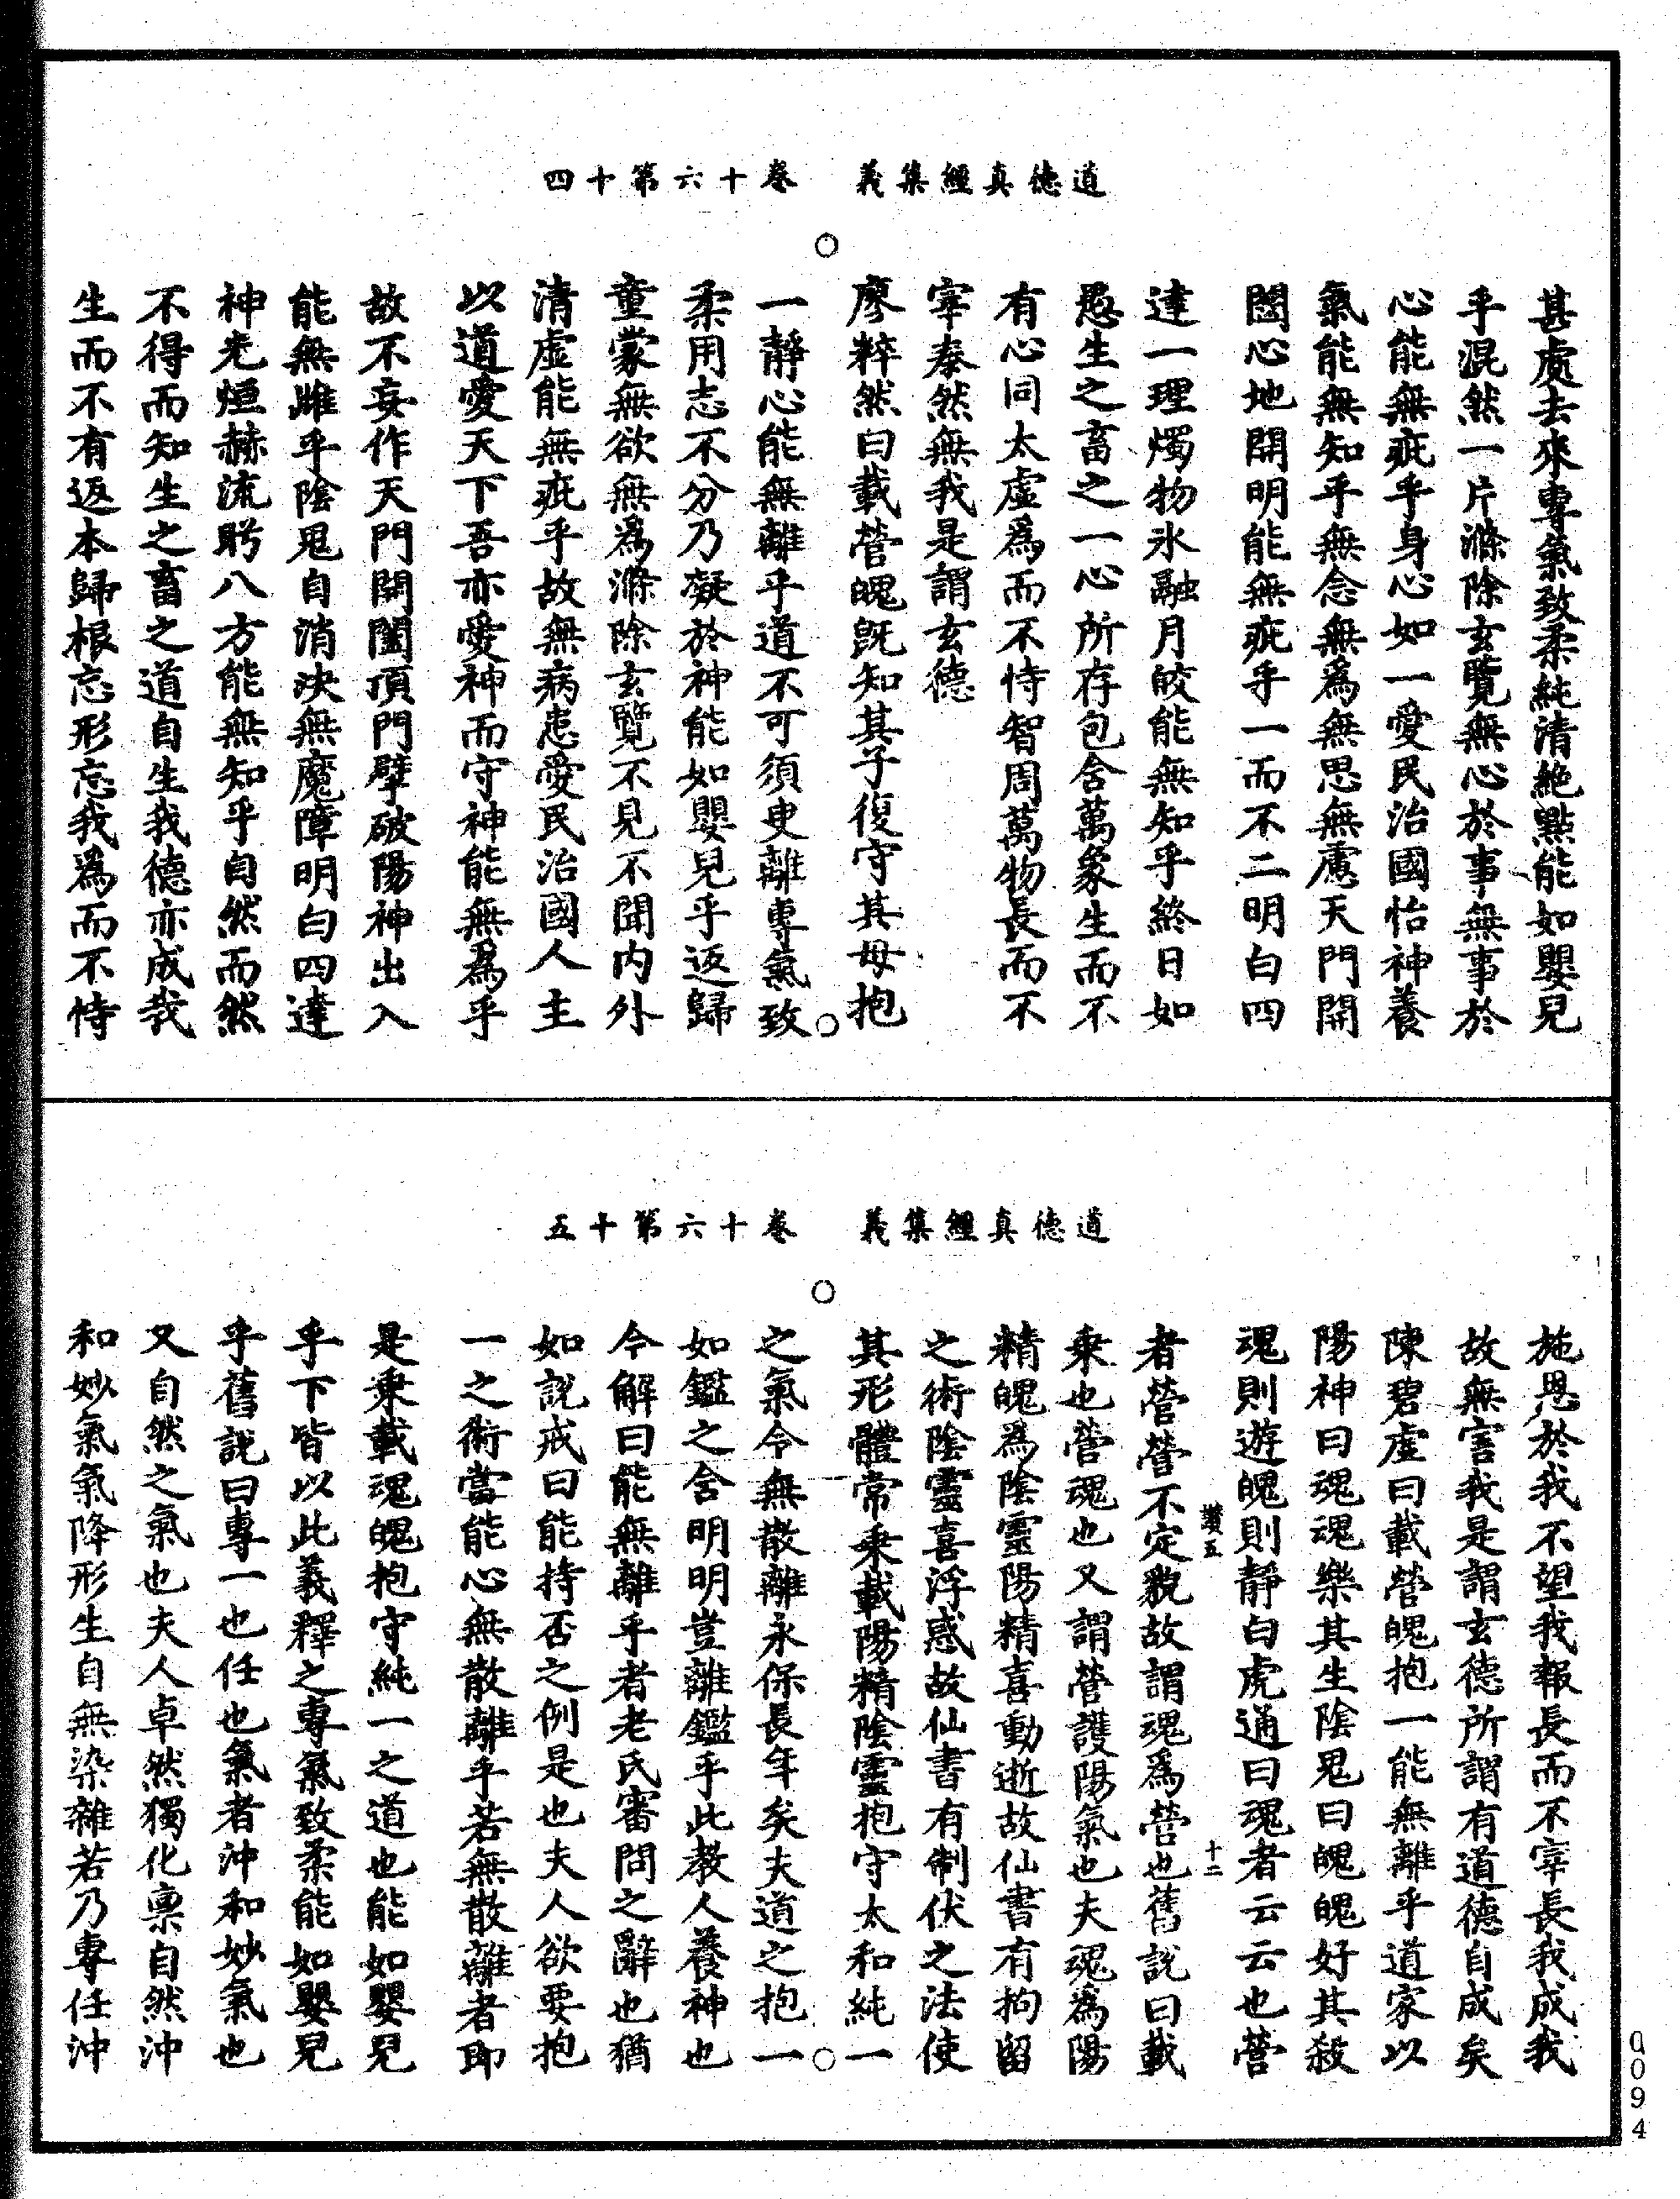 道德真經集義　卷十六第十四
甚處去來專氣致柔純清絶點能如嬰兒
乎混然一片滌除玄覽無心於事無事於
心能無疵乎身心如一愛民治國怡神養
氣能無知乎無念無爲無思無慮天門開
闔心地開明能無疵乎一而不二明白四
達一理燭物氷融月皎能無知乎終日如
愚生之畜之一心所存包含萬象生而不
有心同太虛爲而不恃智周萬物長而不
宰泰然無我是謂玄德
廖粹然曰載營魄旣知其子復守其母抱
一靜心能無離乎道不可須臾離專氣致
柔用志不分乃凝於神能如嬰兒乎返歸
童蒙無欲無爲滌除玄覽不見不聞内外
清虛能無疵乎故無病患愛民治國人主
以道愛天下吾亦愛神而守神能無爲乎
故不妄作天門開闔頂門擘破陽神出入
能無雌乎陰鬼自消決無魔障明白四達
神光烜赫流眄八方能無知乎自然而然
不得而知生之畜之道自生我德亦成我
生而不有返本歸根忘形忘我爲而不恃
道德真經集義　卷十六第十五
施恩於我不望我報長而不宰長我成我
故無害我是謂玄德所謂有道德自成矣
陳碧虛曰載營魄抱一能無離乎道家以
陽神曰魂魂樂其生陰鬼曰魄魄好其殺
魂則遊魄則靜白虎通曰魂者云云也營
讚五　十二
者營營不定貌故謂魂爲營也舊說曰載
乘也營魂也又謂營護陽氣也夫魂爲陽
精魄爲陰靈陽精喜動逝故仙書有拘留
之術陰靈喜浮惑故仙書有制伏之法使
其形體常乘載陽精陰靈抱守太和純一
之氣令無散離永保長年矣夫道之抱一
如鑑之含明明豈離鑑乎此教人養神也
今解曰能無離乎者老氏審問之辭也猶
如說戒曰能持否之例是也夫人欲要抱
一之術當能心無散離乎若無散離者即
是乘載魂魄抱守純一之道也能如嬰兒
乎下皆以此義釋之專氣致柔能如嬰兒
乎舊說曰專一也任也氣者沖和妙氣也
又自然之氣也夫人卓然獨化禀自然沖
和妙氣氣降形生自無染雜若乃專任沖
0094